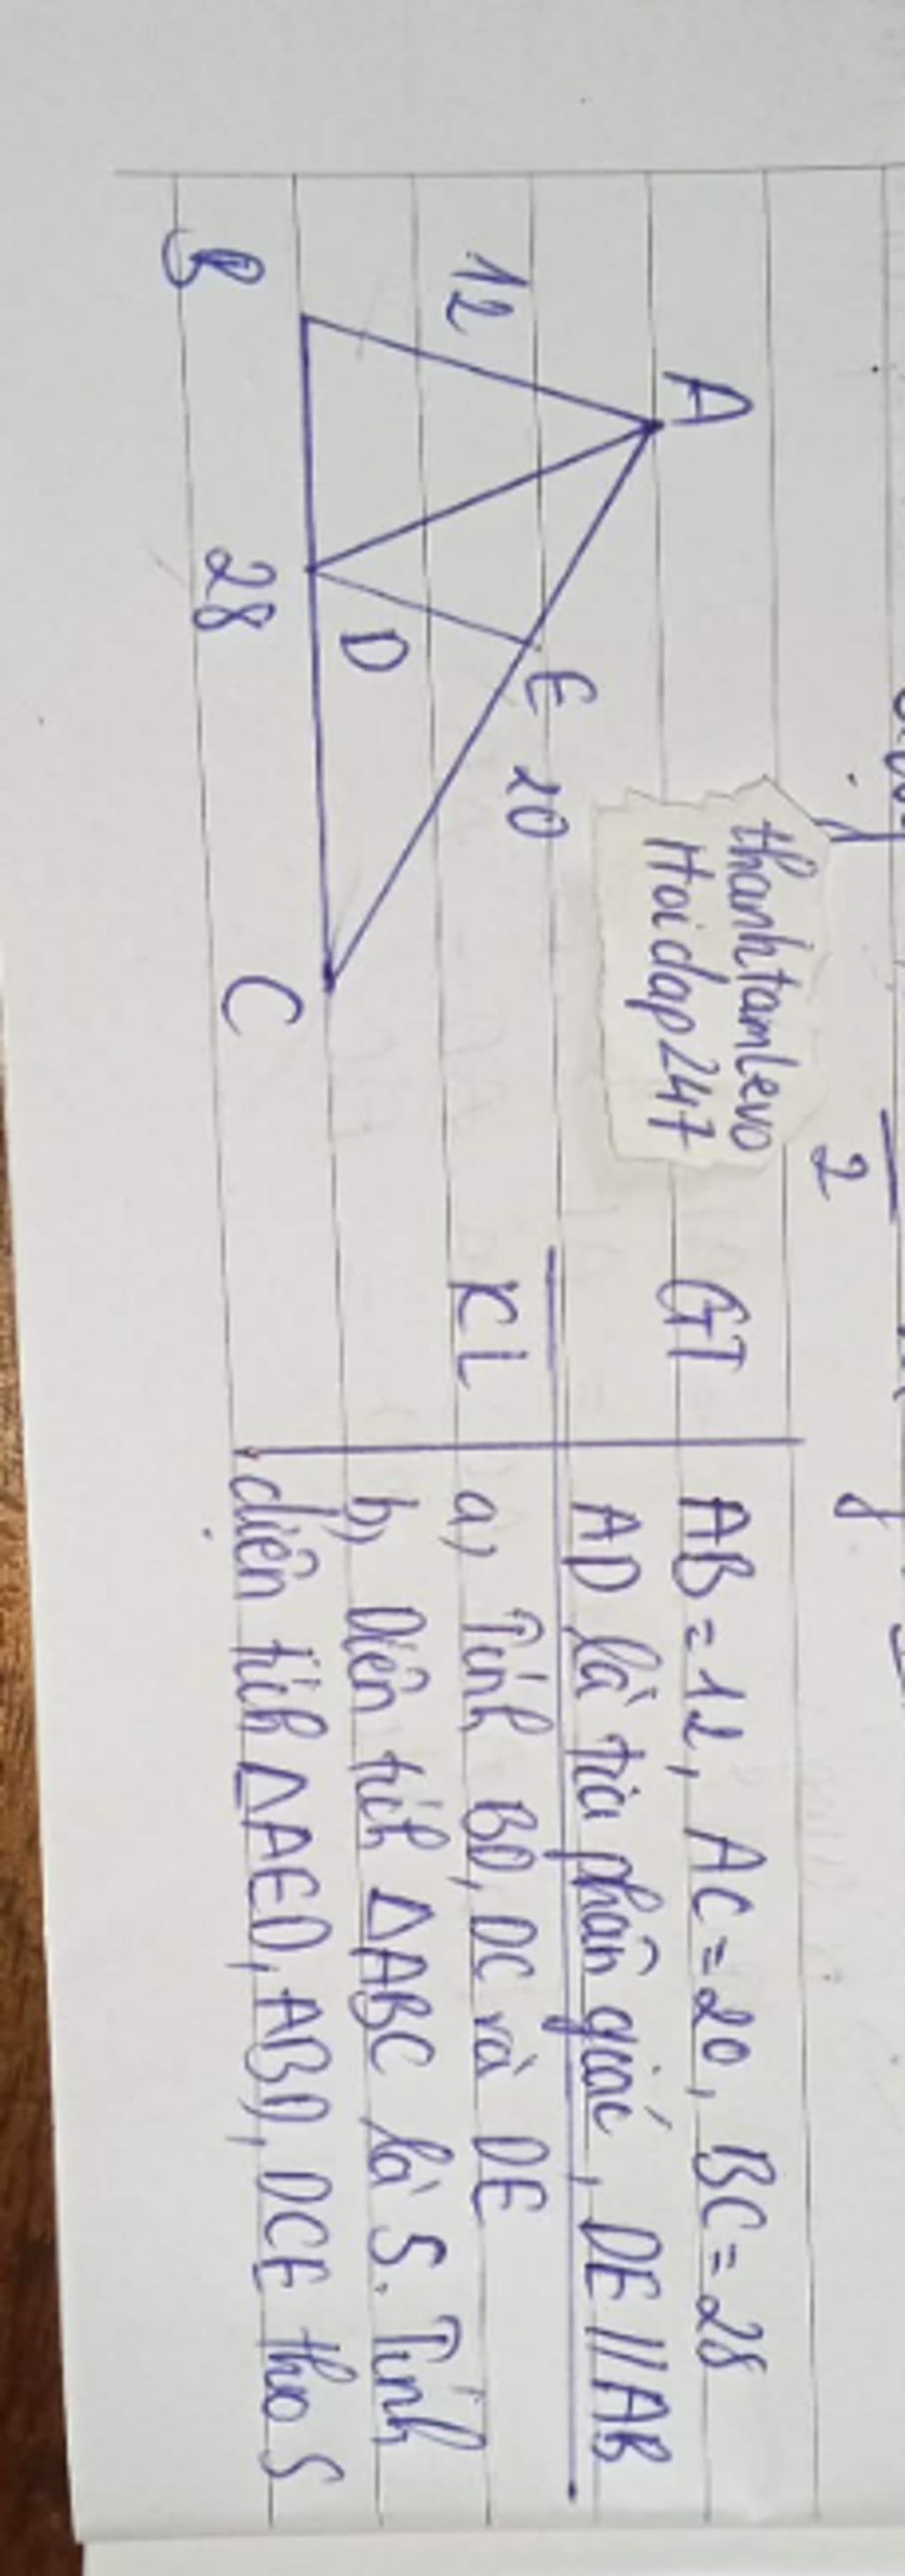 2
A
12
E
20
B
D
28
C
thanhtamlevo
Hoidap247
GT
AB = 12, AC = 20, BC = 28
AD là tia phân giác, DE // AB
KL
a, Tính BD, DC và DE
b, Diện tích ΔABC là S. Tính
diện tích ΔAED, ABD, DCE theo S